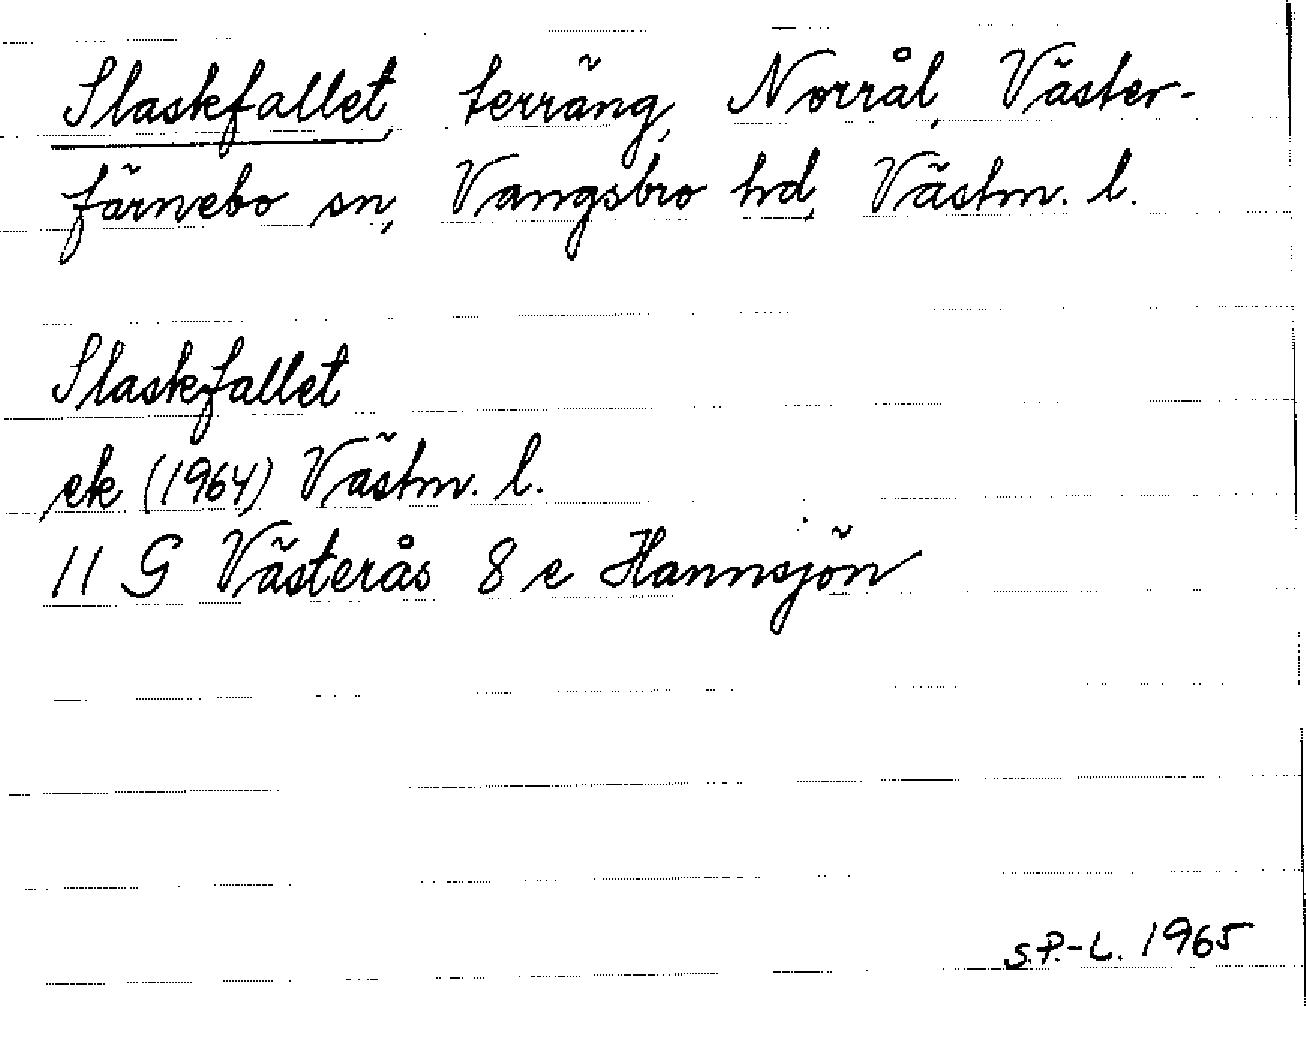 Slaskfallet, terräng, Norrål, Väster-
färnebo sn, Vangsbro hd, Västm. l.
Slaskfallet
ek (1964) Västm. l.
11 G Västerås 8 e Hannsjön
S.P.-L. 1965